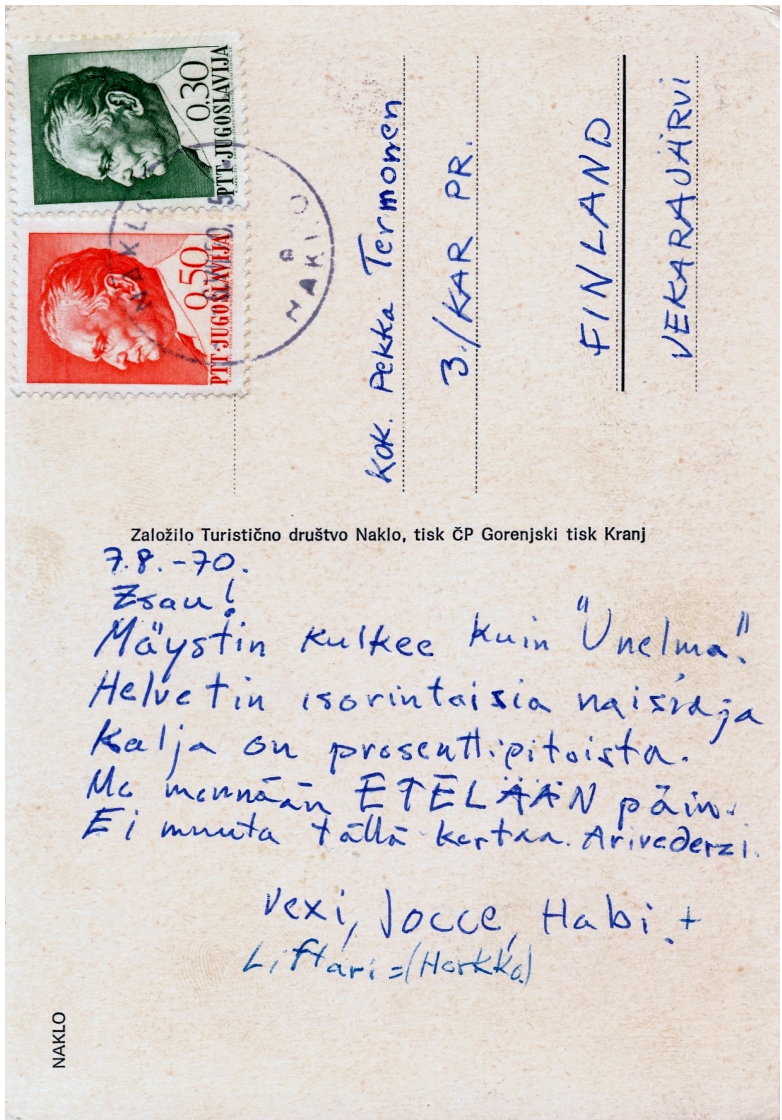 0.30
PTT-JUGOSLAVIJA
0.50
PTT-JUGOSLAVIJA
NAKLO
NAKLO
a
Kok. Pekka Termonen
3./KAR PR.
FINLAND
VEKARAJÄRVI
Založilo Turistično društvo Naklo, tisk ČP Gorenjski tisk Kranj
7.8.-70.
Zsau!
Mäystin kulkee kuin "Unelma".
Helvetin isorintaisia naisia ja
Kalja on prosenttipitoista.
Me mennään ETELÄÄN päin.
Ei muuta tällä kertaa. Arivederzi.
Vexi, Jocce, Habi. +
Liftari =(Harkka)
NAKLO